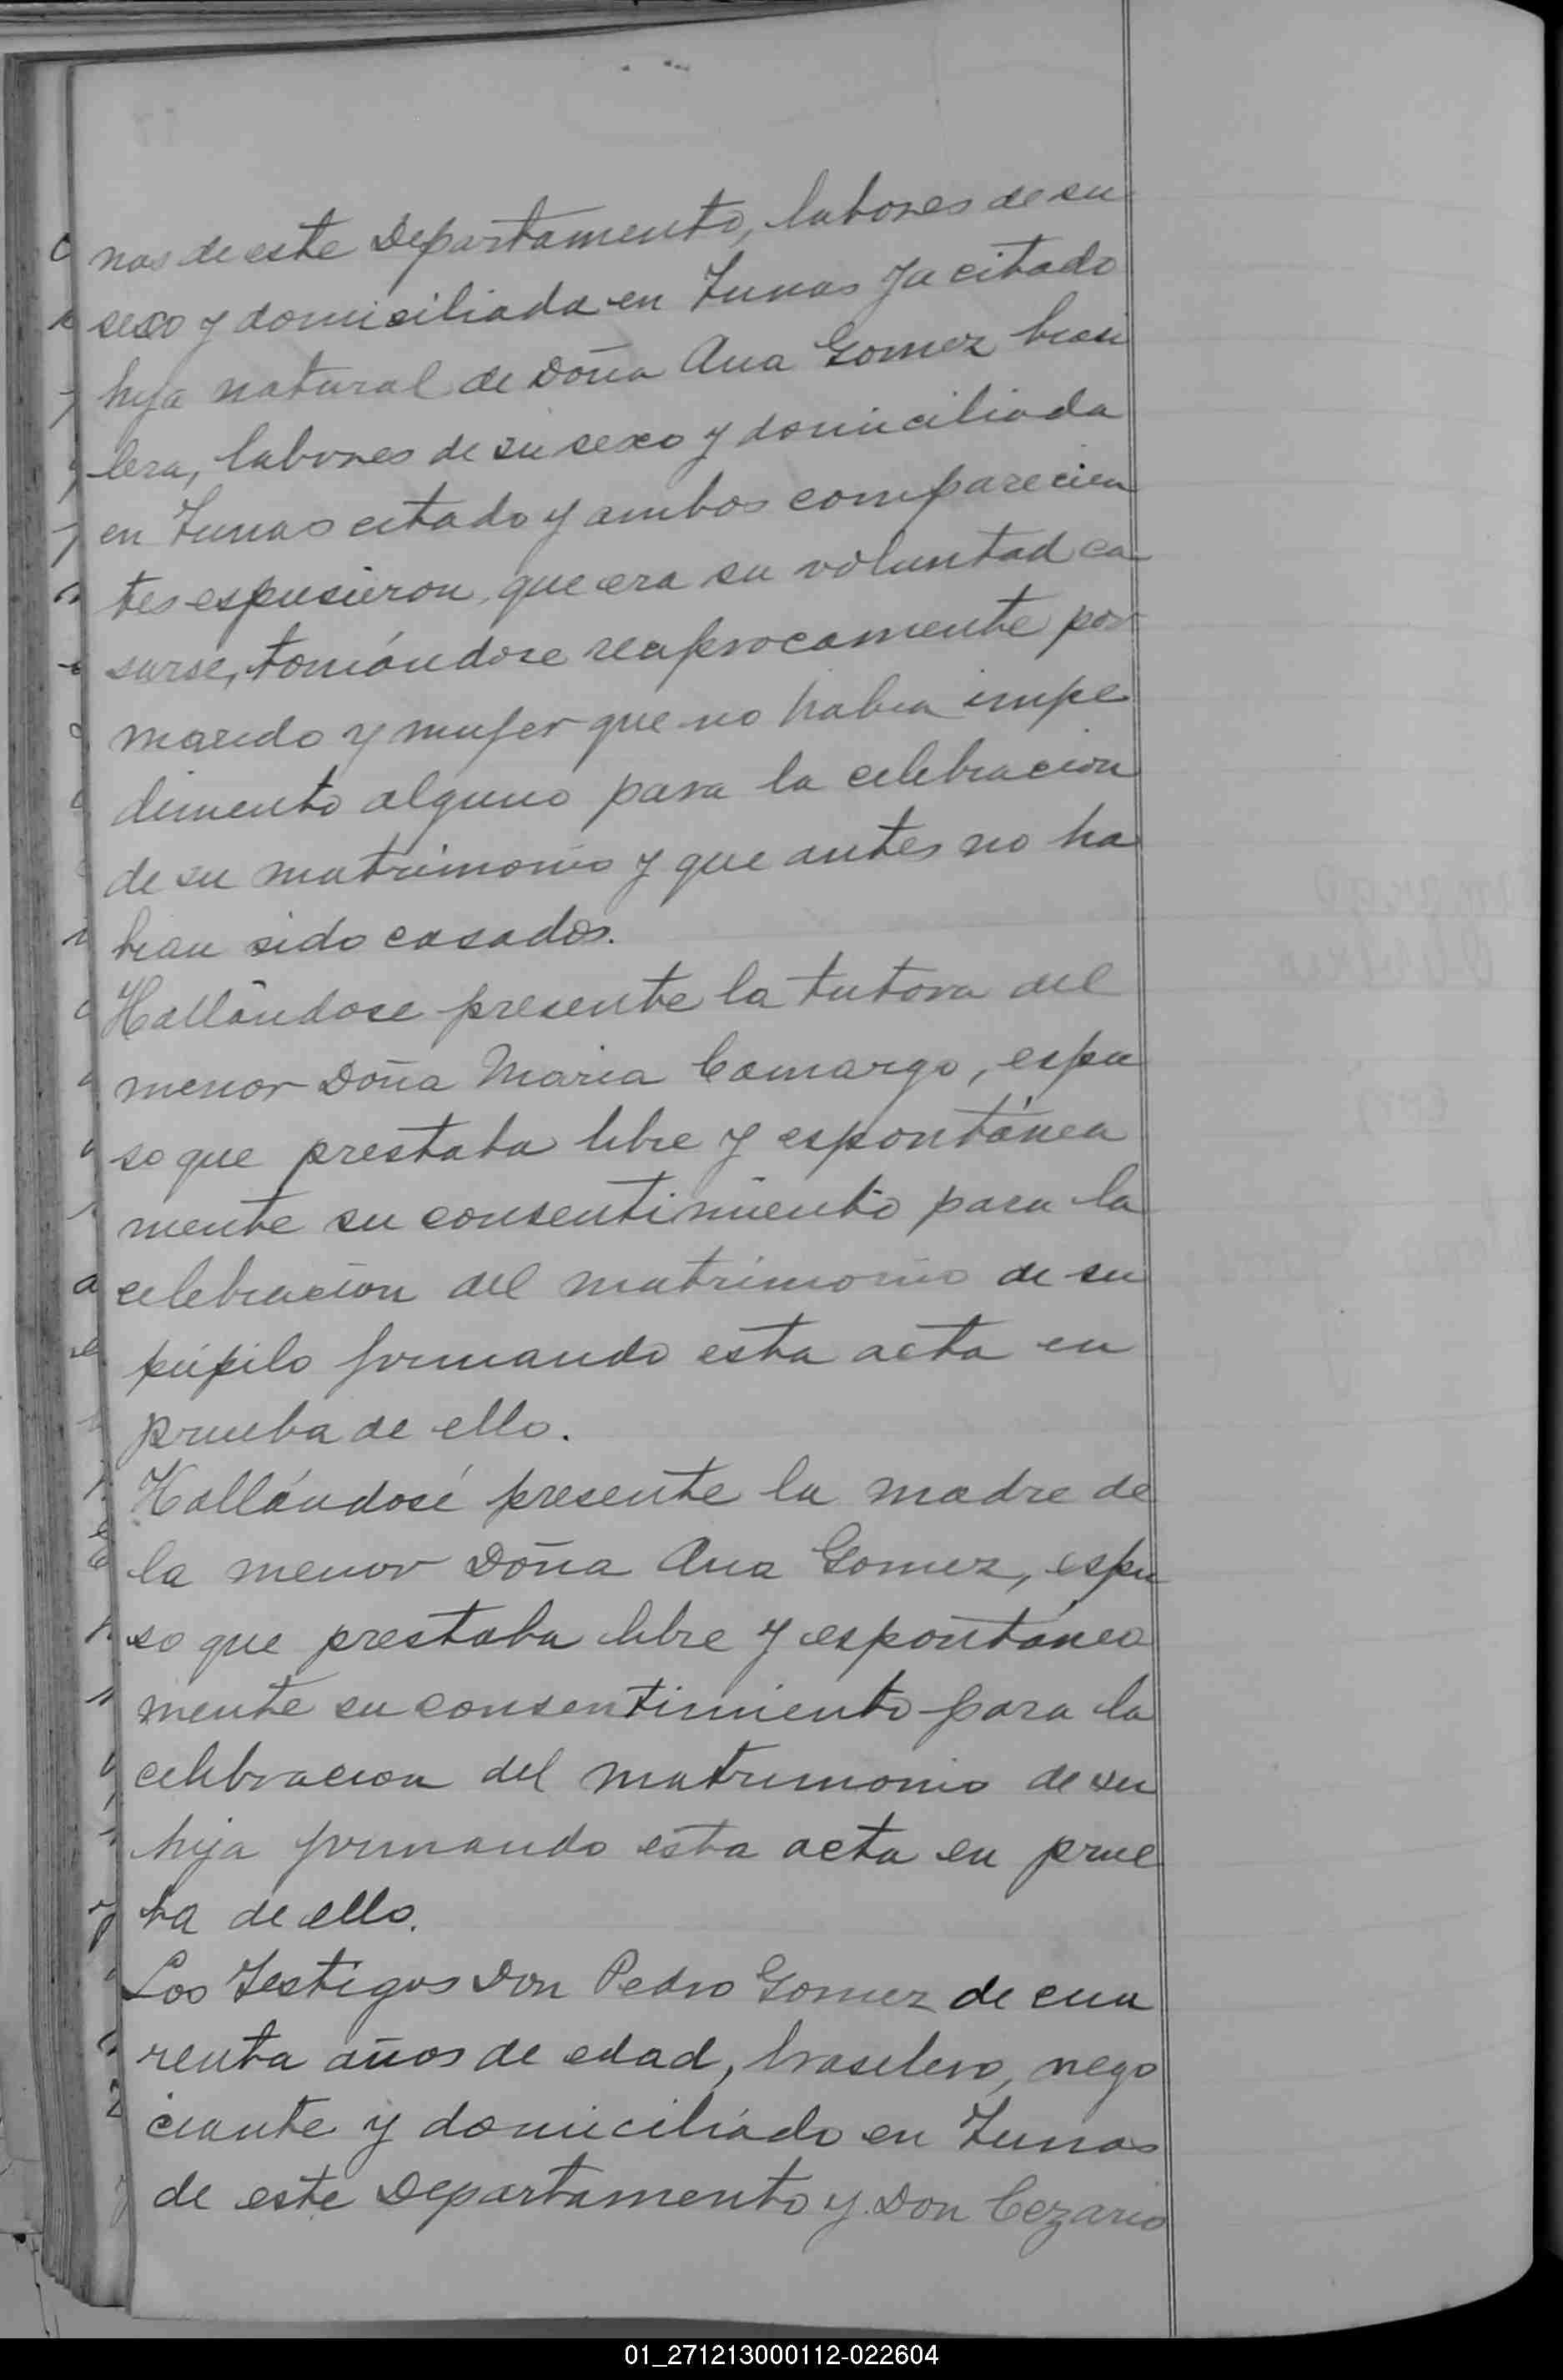 nas de este Departamento, labores de su
sexo y domiciliada en Tunas ya citado
hija natural de Doña Ana Gomez brasi
lera, labores de su sexo y domiciliada
en Tunas citado y ambos comparecien
tes espusieron, que era su voluntad ca
sarse, tomándose reciprocamente por
marido y mujer que no habia impe
dimento alguno para la celebracion
de su matrimonio y que antes no ha
bian sido casados.
Hallándose presente la tutora del
menor Doña Maria Camargo, espu
so que prestaba libre y espontánea
mente su consentimiento para la
celebracion del matrimonio de su
púpilo firmando esta acta en
prueba de ello.
Hallándosé presente la madre de
la menor Doña Ana Gomez, espu
so que prestaba libre y espontánea
mente su consentimiento para la
celebracion del matrimonio de su
hija firmando esta acta en prue
ba de ello.
Los Testigos Don Pedro Gomez de cua
renta años de edad, brasilero, nego
ciante y domiciliado en Tunas
de este Departamento y Don Cezario
01_271213000112-022604